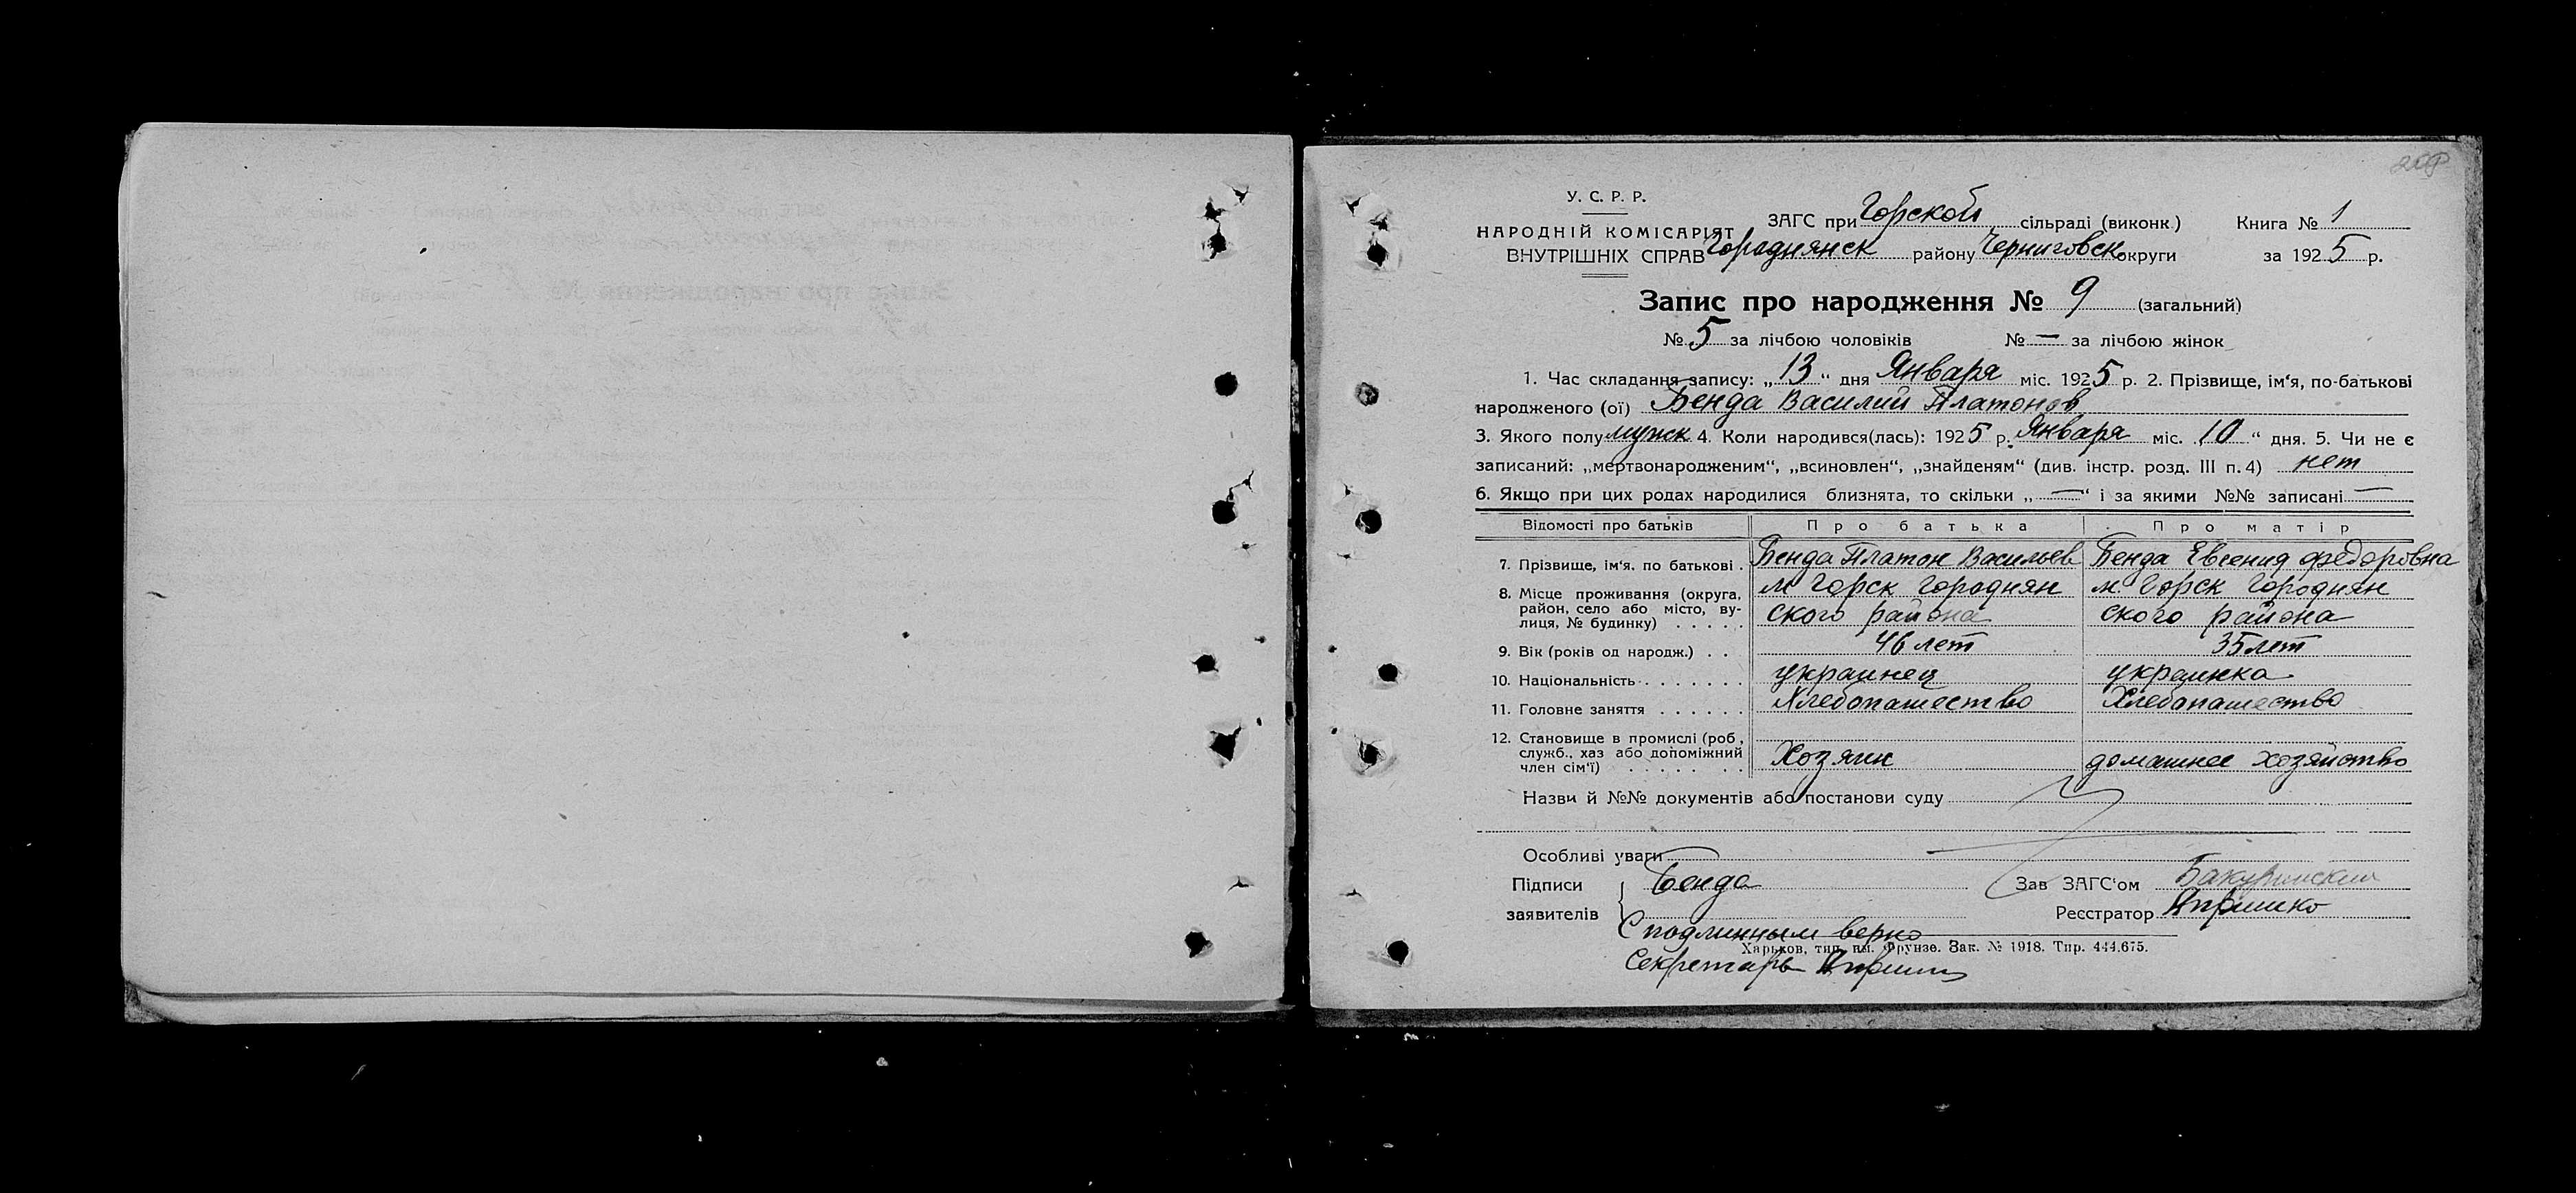 У. С. Р. Р.
НАРОДНІЙ КОМІСАРІЯТ
ВНУТРІШНІХ СПРАВ
ЗАГС при Горской сільраді (виконк.) Книга № 1
Городнянск району Черниговск округи за 1925 р.
Запис про народження № 9 (загальний)
№ 5 за лічбою чоловіків № — за лічбою жінок
1. Час складання запису: „13“ дня Января міс. 1925 р. 2. Прізвище, ім‘я, по-батькові
народженого (ої) Бенда Василий Платонов
3. Якого полу мужск 4. Коли народився(лась): 1925 р. Января міс. 10“ дня. 5. Чи не є
записаний: „мертвонародженим“, „всиновлен“, „знайденям“ (див. інстр. розд. III п. 4) нет
6. Якщо при цих родах народилися близнята, то скільки „—“ і за якими №№ записані —
Відомості про батьків Про батька Про матір
7. Прізвище, ім‘я, по батькові . Бенда Платон Васильев Бенда Евгения Федоровна
8. Місце проживання (округа, м Горск Городнян м. Горск Городнян
район, село або місто, ву-
лиця, № будинку) . . . . . ского района ского района
9. Вік (років од народж.) . . 46 лет 35 лет
10. Національність . . . . . . . украинец украинка
11. Головне заняття . . . . . . Хлебопашество Хлебопашество
12. Становище в промислі (роб.,
служб., хаз або допоміжний
член сім‘ї) . . . . . . . . Хозяин домашнее хозяйство
Назви й №№ документів або постанови суду
Особливі уваги
Підписи Бенда Зав ЗАГС‘ом
заявителів Реєстратор
С подлинным верно
Харьков, тип. им. Фрунзе. Зак. № 1918. Тир. 444.675.
Секретарь